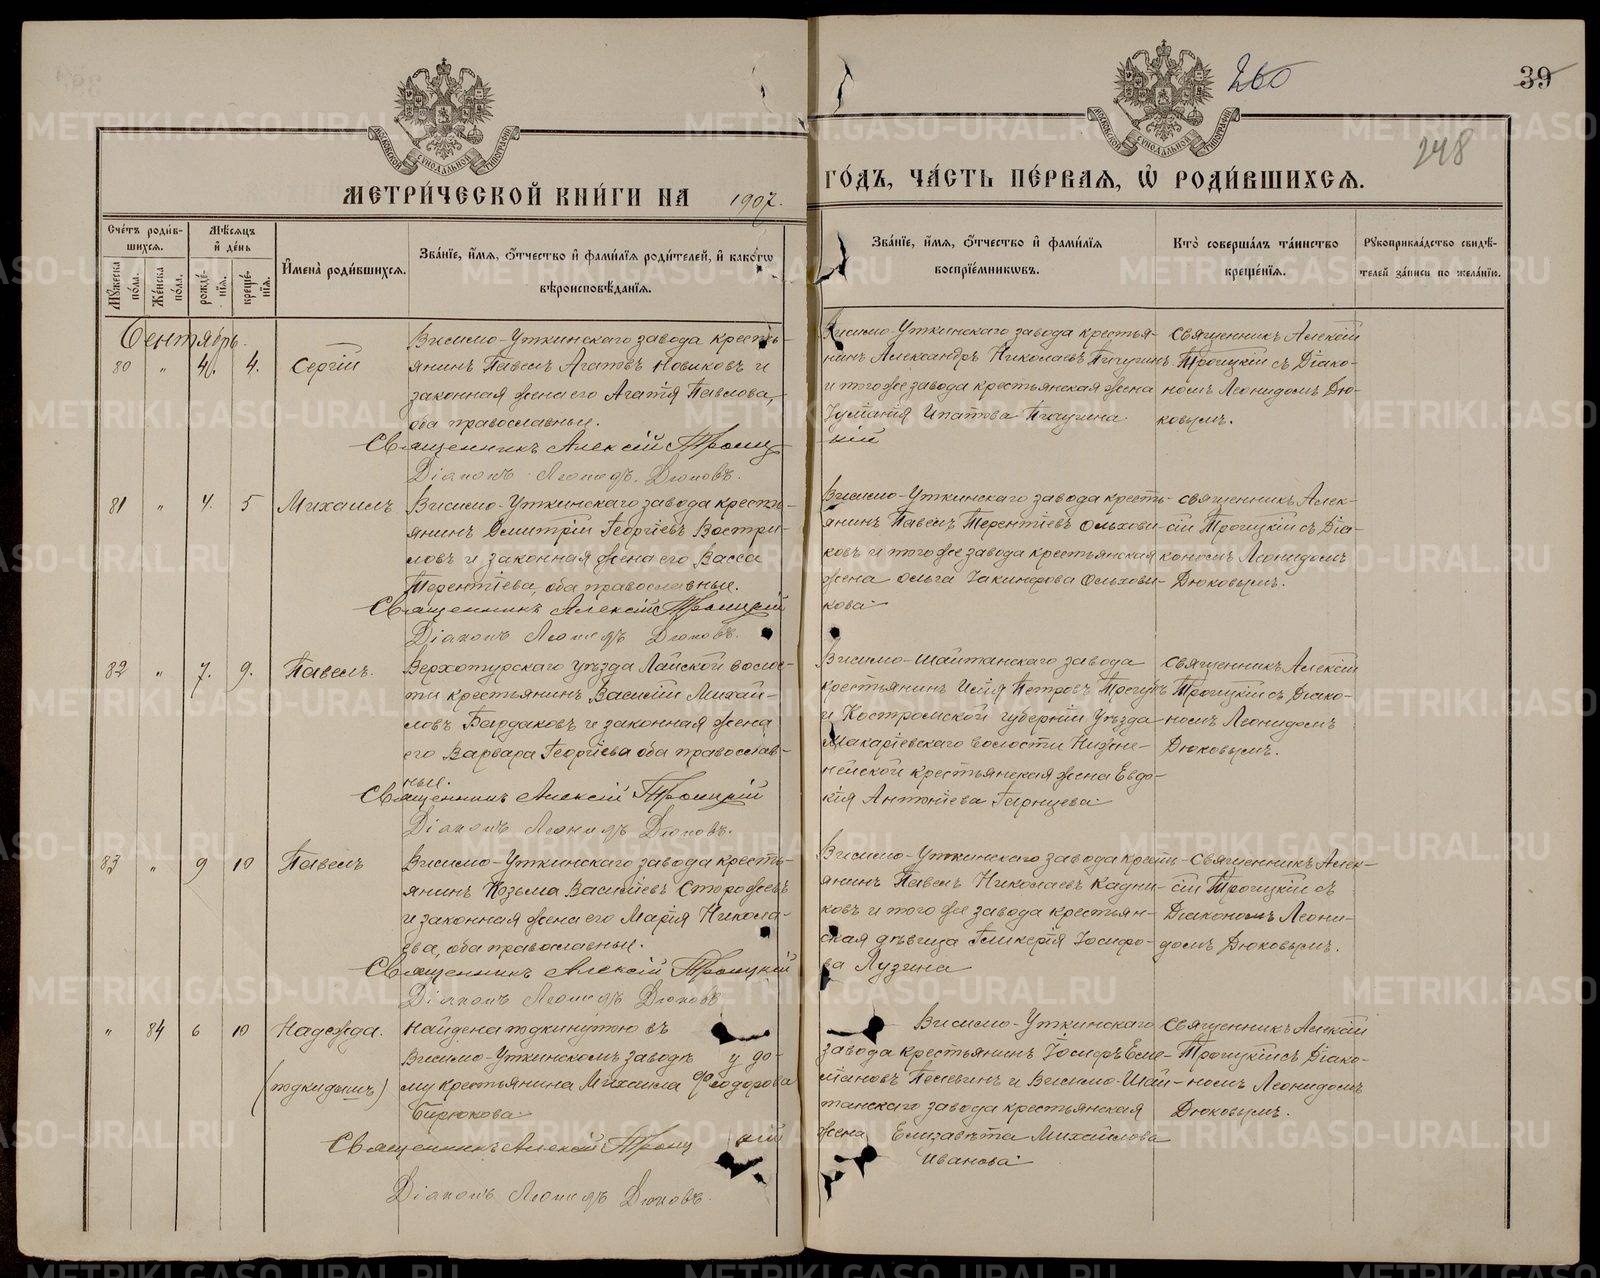 260
39
248
МЕТРИ́ЧЕСКОЙ КНИ́ГИ НА 1907.
ГО́ДЪ, ЧА́СТЬ ПЕ́РВАЯ, Ѡ҆ РОДИ́ВШИХСЯ.
Сче́тъ роди́в-
шихся.
Мꙋ́жеска по́ла.
Же́нска по́ла.
Мѣ́сяцъ
и҆ де́нь
рожде́-
нїя.
креще́-
нїя.
И҆мена̀ роди́вшихся.
Зва́нїе, и҆́мя, ѻ҆́тчество и҆ фами́лїя роди́телей, и҆ како́гѡ
вѣроисповѣ́данїя.
Зва́нїе, и҆́мя, ѻ҆́тчество и҆ фами́лїя
воспрїе́мникѡвъ.
Кто̀ соверша́лъ та́инство
креще́нїя.
Рꙋкоприкла́дство свидѣ́-
телей за́писи по жела́нїю.
Сентябрь.
80 " 4. 4. Сергій
Висимо-Уткинскаго завода кресть-
янинъ Павелъ Агаповъ Новиковъ и
законная жена его Агатія Павлова,
оба православные.
Священникъ Алексій Троиц
Діаконъ Леонидъ Дюковъ.
Висимо-Уткинскаго завода крестья-
нинъ Александръ Николаевъ Пичугинъ
и того же завода крестьянская жена
Іуліанія Ипатова Пичугина
кій
Священникъ Алексій
Троицкій съ Діако-
номъ Леонидомъ Дю-
ковымъ.
81 " 4. 5 Михаилъ
Висимо-Уткинскаго завода кресть-
янинъ Димитрій Георгіевъ Востри-
ловъ и законная жена его Васса
Терентіева, оба православные.
Священникъ Алексій Троицкій
Діаконъ Леонидъ Дюковъ.
Висимо-Уткинскаго завода кресть-
янинъ Павелъ Терентіевъ Ольхови-
ковъ и того же завода крестьянская
жена Ольга Іакинфова Ольхови-
кова
Священникъ Алек-
сій Троицкій съ Діа-
кономъ Леонидомъ
Дюковымъ.
82 " 7. 9. Павелъ.
Верхотурскаго уѣзда Лайской волос-
ти крестьянинъ Василій Михай-
ловъ Бардаковъ и законная жена
его Варвара Георгіева оба православ-
ные.
Священникъ Алексій Троицкій
Діаконъ Леонидъ Дюковъ.
Висимо-Шайтанскаго завода
крестьянинъ Илія Петровъ
и Костромской губерніи Уѣзда
Макаріевскаго волости Нижне-
нейской крестьянская жена Евдо-
кія Антоніева
Священникъ Алексій
Троицкій съ Діако-
номъ Леонидомъ
Дюковымъ.
83 " 9 10 Павелъ
Висимо-Уткинскаго завода кресть-
янинъ Козьма Василіевъ Сторожевъ
и законная жена его Марія Никола-
ева, оба православные.
Священникъ Алексій Троицкій
Діаконъ Леонидъ Дюковъ
Висимо-Уткинскаго завода кресть-
янинъ Павелъ Николаевъ Кадни-
ковъ и того же завода крестьян-
ская дѣвица Гликерія Іосифо-
ва Лузина
Священникъ Алек-
сій Троицкій съ
Діакономъ Леони-
домъ Дюковымъ.
" 84 6 10 Надежда.
(подкидышъ)
Найдена подкинутою въ
Висимо-Уткинскомъ заводѣ у до-
му крестьянина Михаила Ѳеодорова
Бирюкова
Священникъ Алексій Троиц кій
Діаконъ Леонидъ Дюковъ.
Висимо-Уткинскаго
завода крестьянинъ Іосифъ Еме-
ліановъ и Висимо-Шай-
танскаго завода крестьянская
жена Елизавета Михайлова
Иванова
Священникъ Алексій
Троицкій съ Діако-
номъ Леонидомъ
Дюковымъ.
METRIKI.GASO-URAL.RU